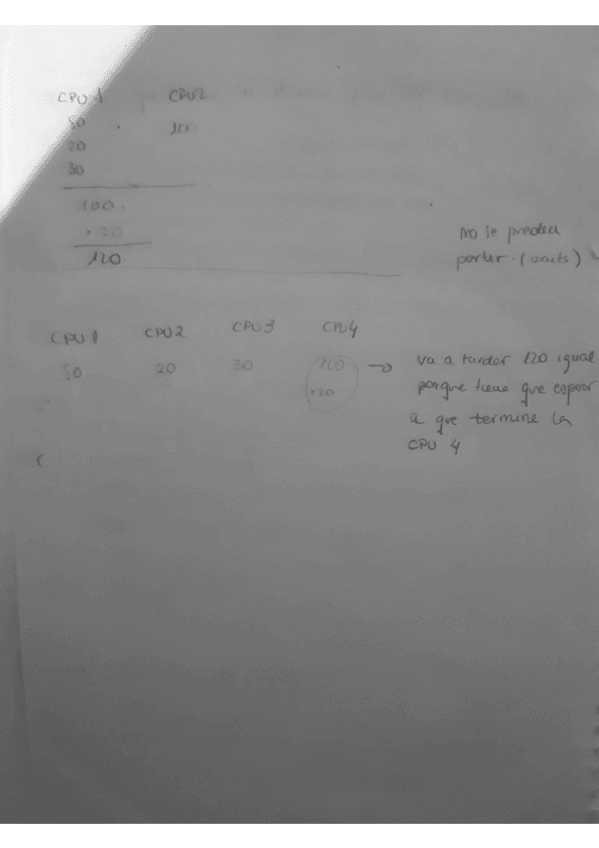 CPU 1 CPU2
50 100
20
30
100
+ 20
120
no se pueden
partir. (waits)
CPU 1 CPU 2 CPU 3 CPU4
50 20 30 100 → va a tardar 120 igual
+20 porque tiene que esperar
a que termine la
CPU 4